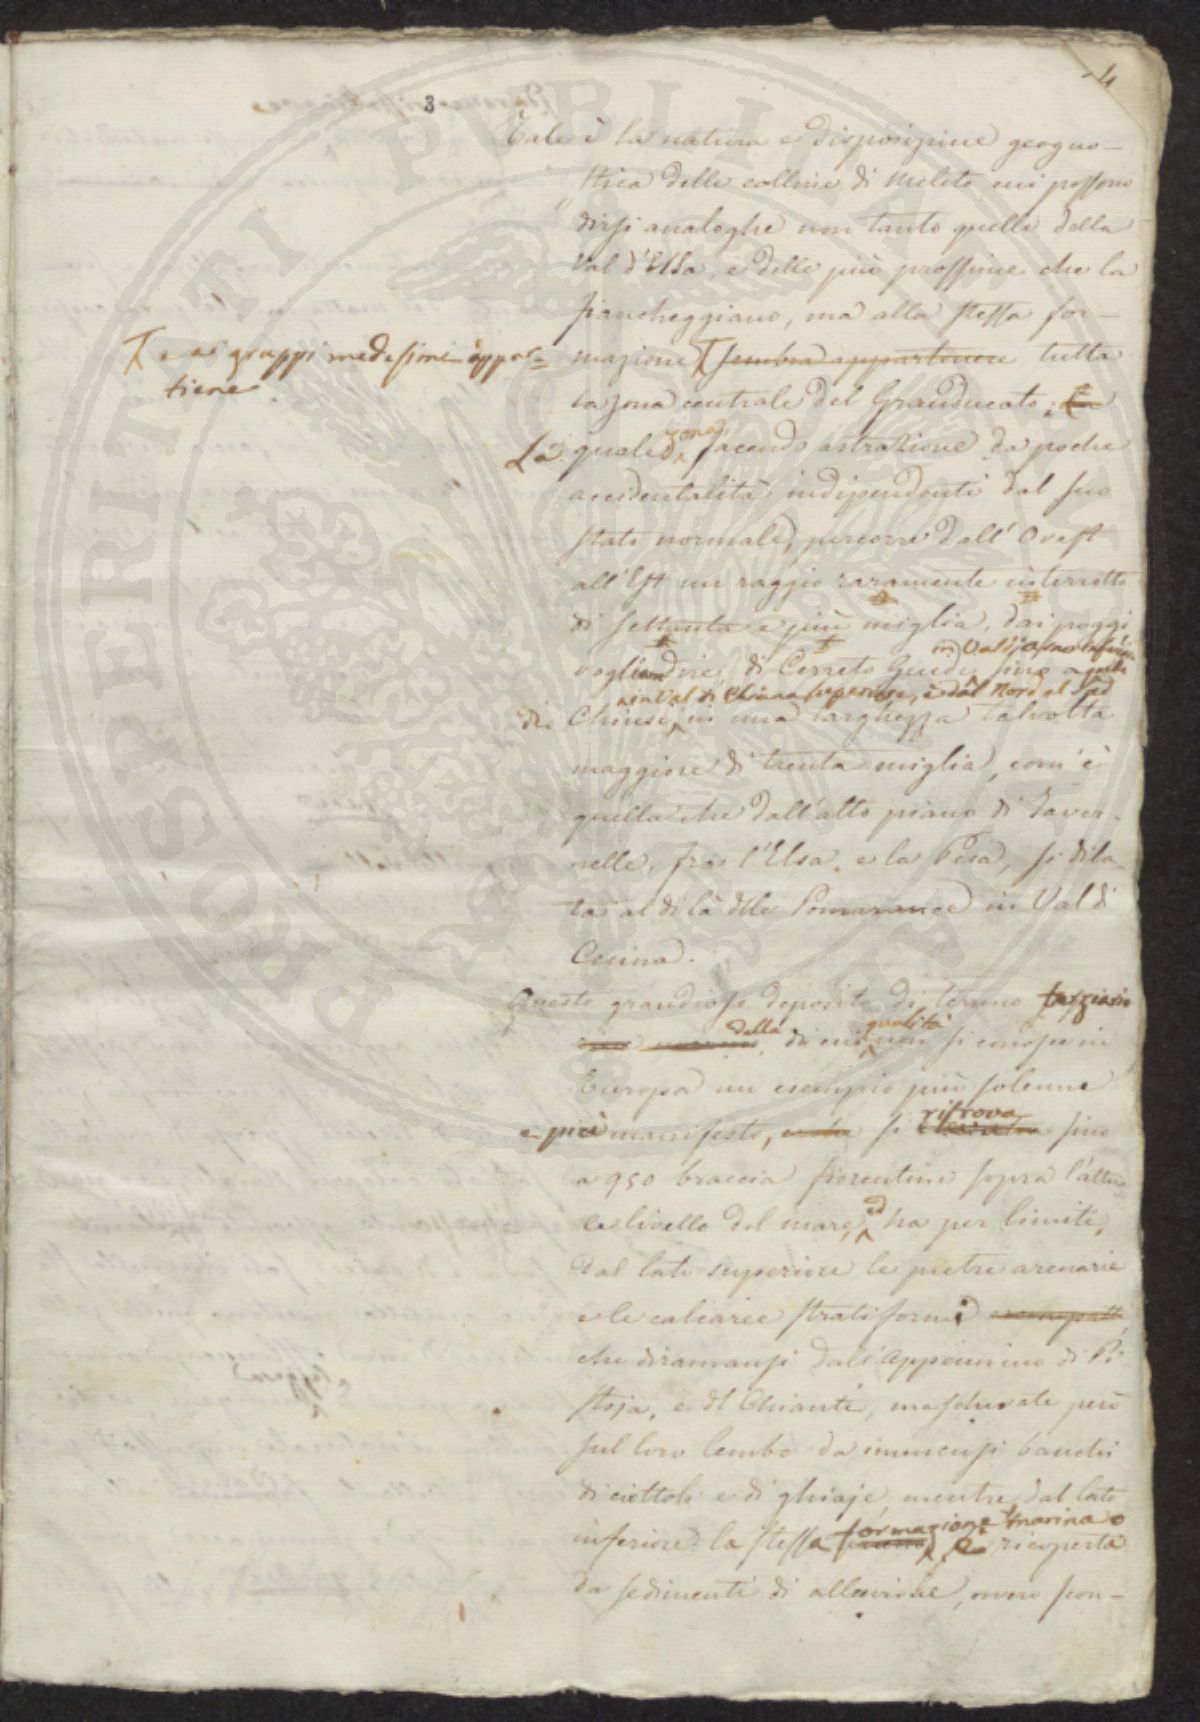 4
3
Tale è la natura e disposizione geogno-
stica delle colline di Meleto cui possono
dirsi analoghe non tanto quelle della
Val d'Elsa, e delle più prossime che la
fiancheggiano, ma alla stessa for-
e ai gruppi medesimi appar=
tiene
mazione sembra appartenere tutta
la zona centrale del Granducato; la
La quale zona, facendo astrazione da poche
accidentalità indipendenti dal suo
stato normale, percorre dall'Ovest
all'Est un raggio raramente interrotto
di settanta e più miglia, dai poggi
in Val inferiore
voglian dire, di Cerreto Guidi fino a quelli
in Val di Chiana superiore, e dal Nord al Sud
di Chiusi, in una larghezza talvolta
maggiore di trenta miglia, com'è
quella che dall'alto piano di Taver-
nelle, fra l'Elsa e la Pesa, si dila-
ta al di là delle Pomarance in Val di
Cecina.
Questo grandioso deposito di terreno terziario
della qualità
di cui non si conosce in
Europa un esempio più solenne
ritrova
e più manifesto, si fino
a 950 braccia fiorentine sopra l'attua
ed
le livello del mare, ha per limite,
dal lato superiore le pietre arenarie
e le calcaree stratiformi e compatte
che diramansi dall'Appennino di Pi
stoja, e del Chianti, mascherate però
sul loro lembo da immensi banchi
di ciottoli e di ghiaje, mentre dal lato
formazione marina
inferiore la stessa è ricoperta
da sedimenti di alluvione, ovvero son-